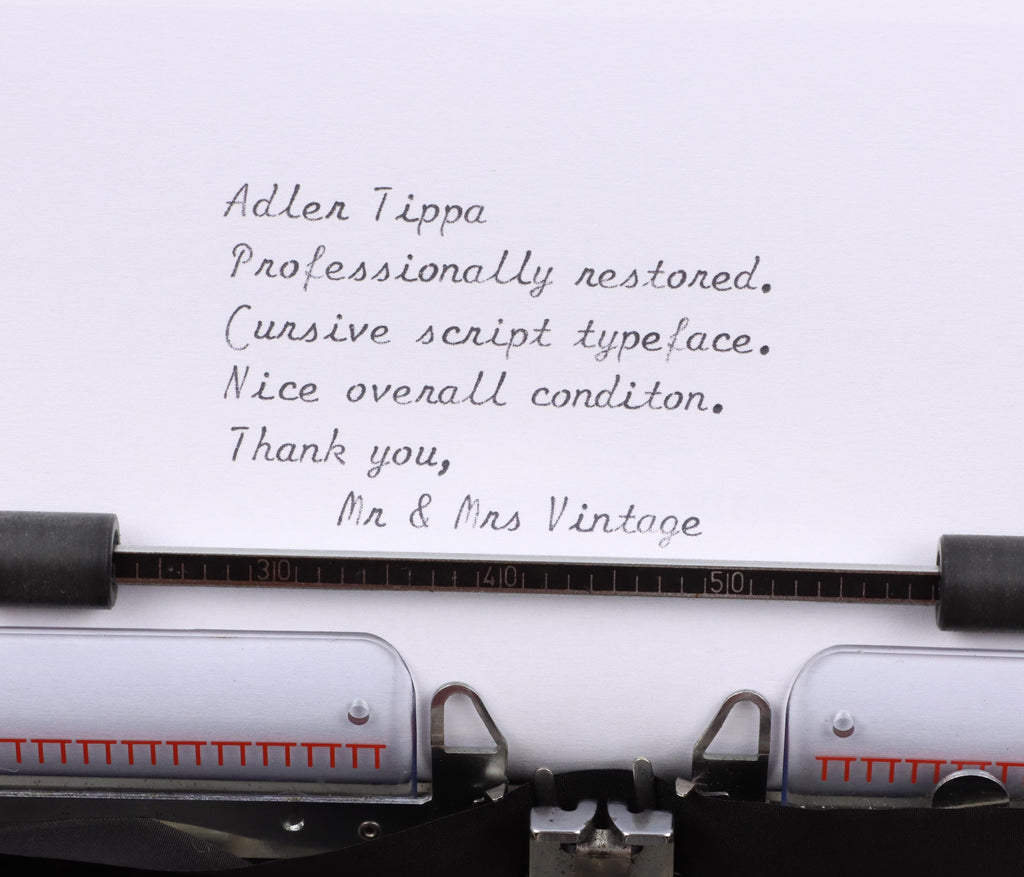 Adler Tippa
Professionally restored.
Cursive script typeface.
Nice overall conditon.
Thank you,
Mr & Mrs Vintage
30 40 50